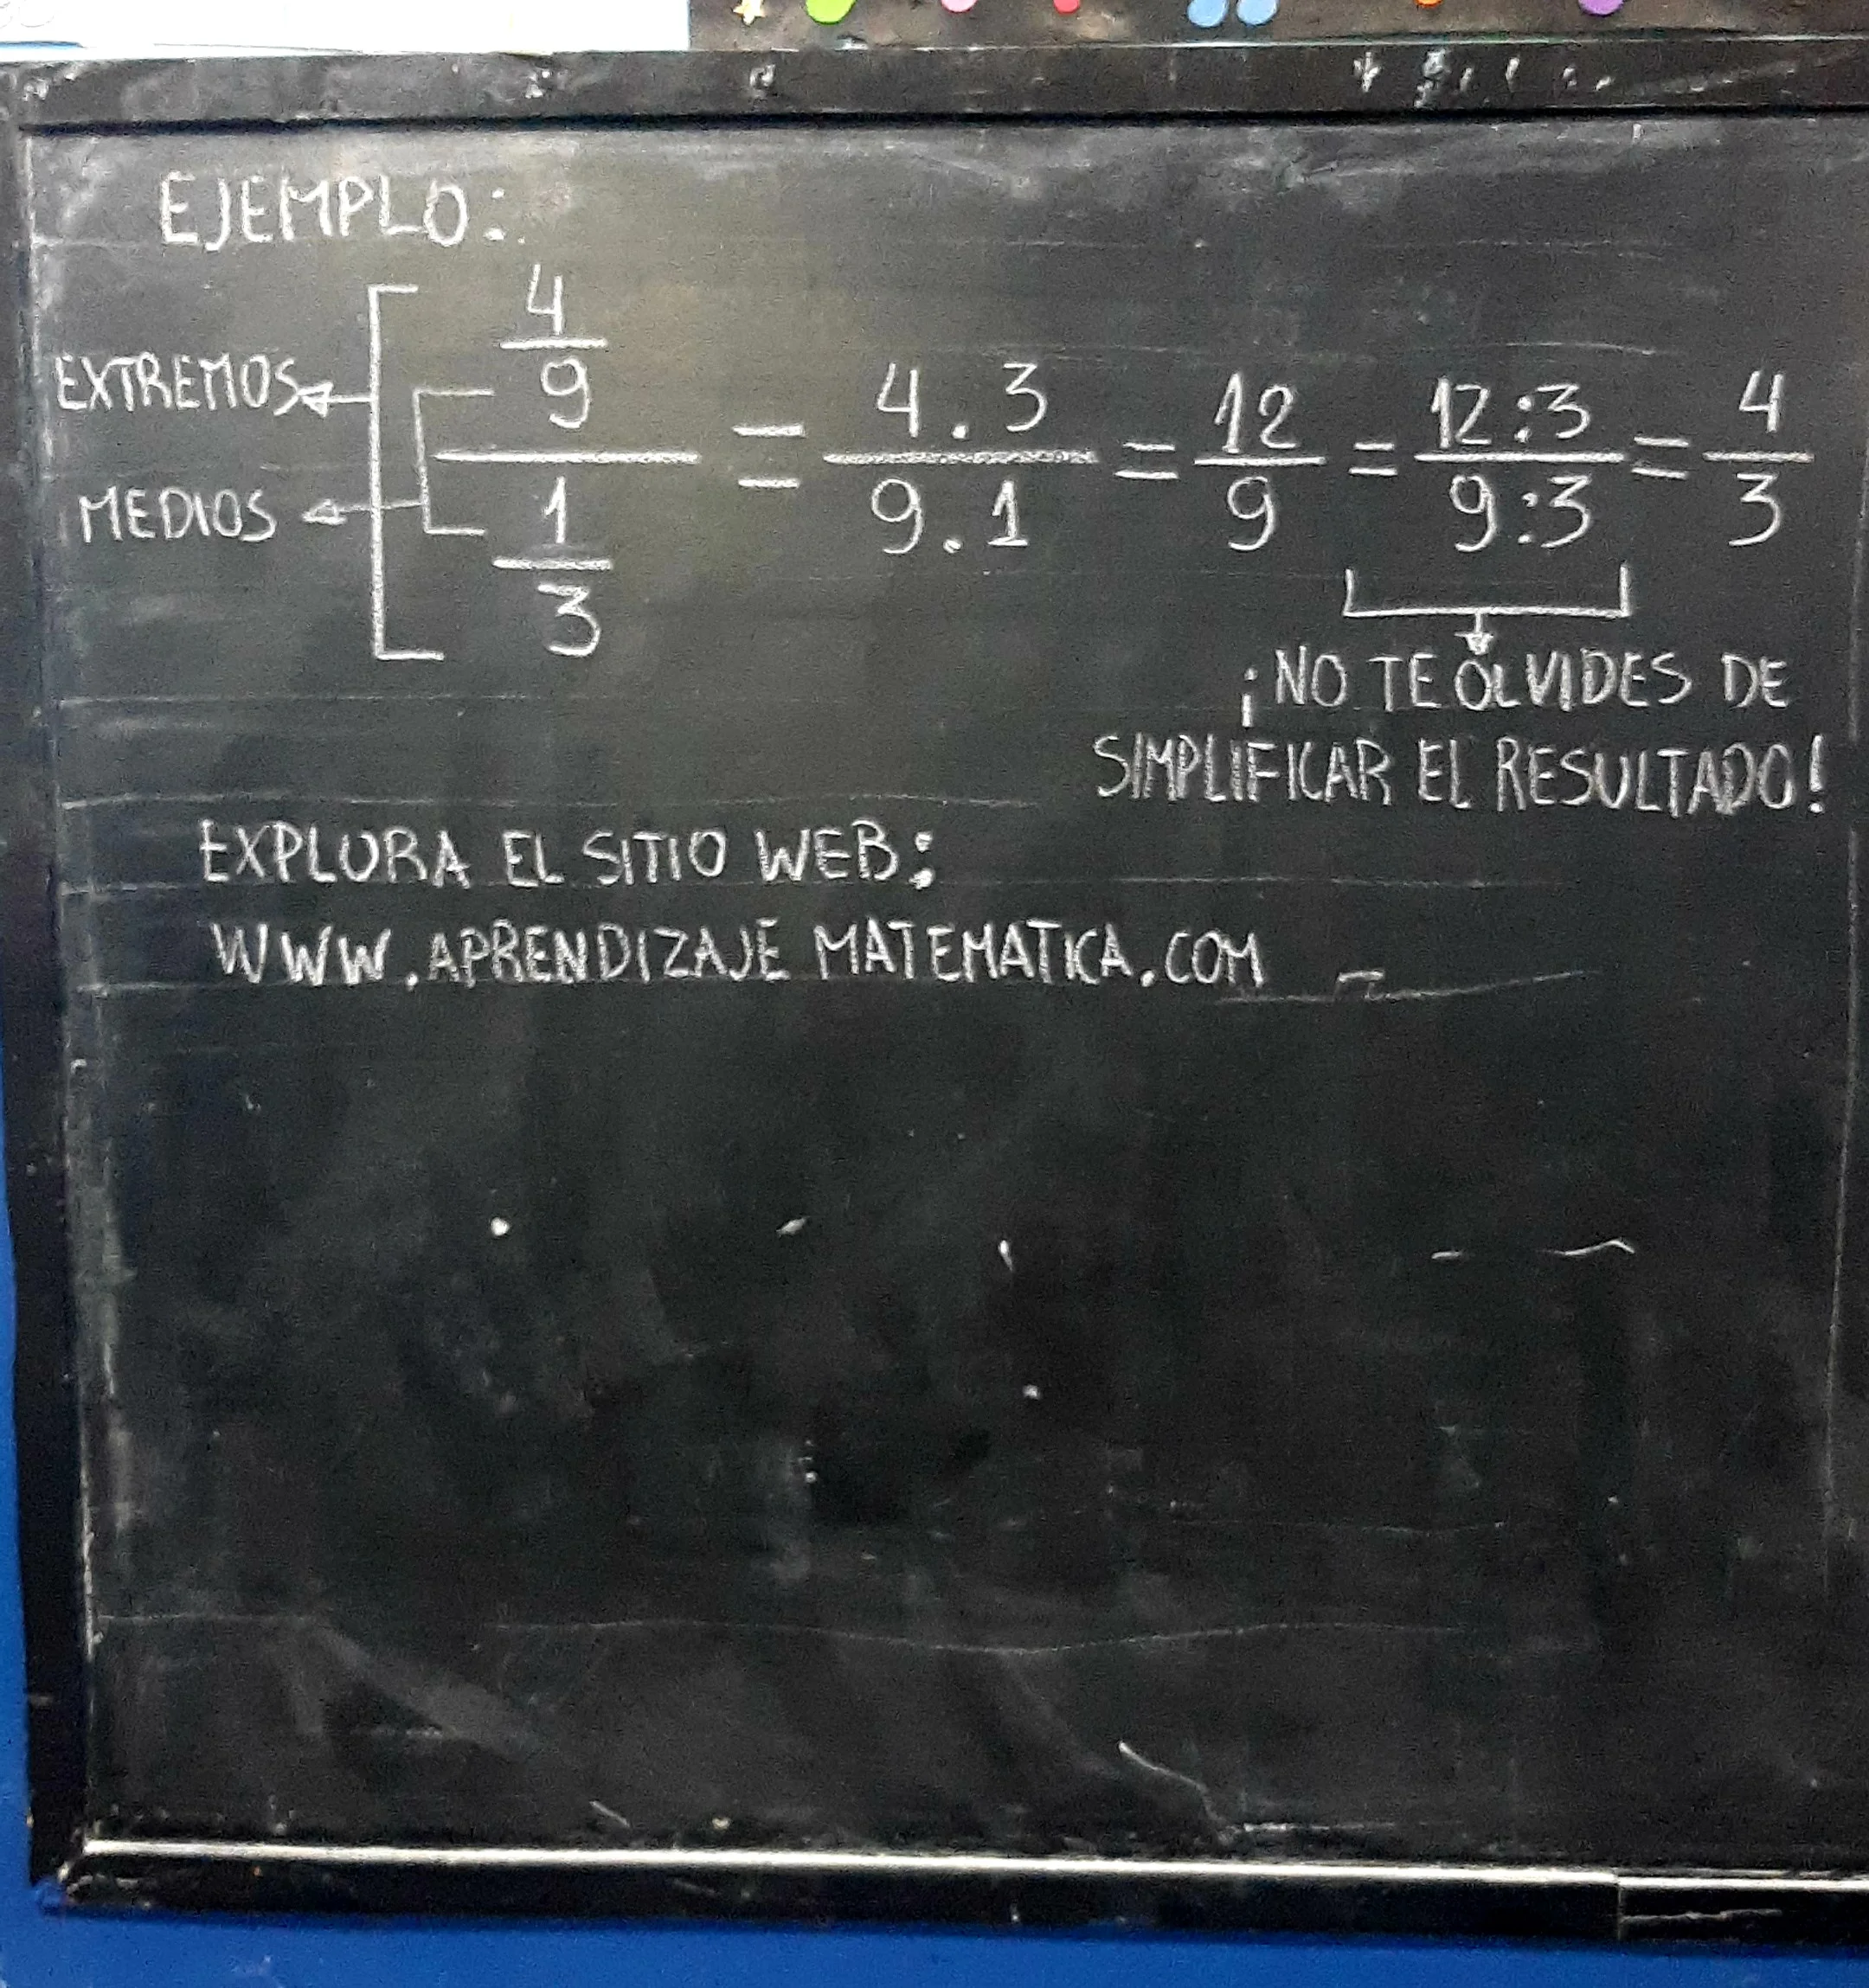 EJEMPLO:
EXTREMOS
MEDIOS
4/9 / 1/3 = 4 . 3 / 9 . 1 = 12/9 = 12:3 / 9:3 = 4/3
¡NO TE OLVIDES DE
SIMPLIFICAR EL RESULTADO!
EXPLORA EL SITIO WEB:
WWW.APRENDIZAJE MATEMATICA.COM